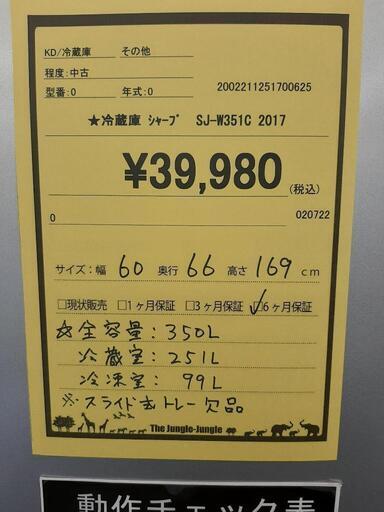 KD/冷蔵庫 その他
程度:中古
型番:0 年式:0 2002211251700625
★冷蔵庫 ｼｬｰﾌﾟ SJ-W351C 2017
¥39,980 (税込)
0 020722
サイズ:幅 60 奥行 66 高さ 169 cm
□現状販売 □1ヶ月保証 □3ヶ月保証 ☑6ヶ月保証
☆全容量:350L
冷蔵室:251L
冷凍室: 99L
※スライド式トレー欠品
The Jungle-Jungle
動作チェック表